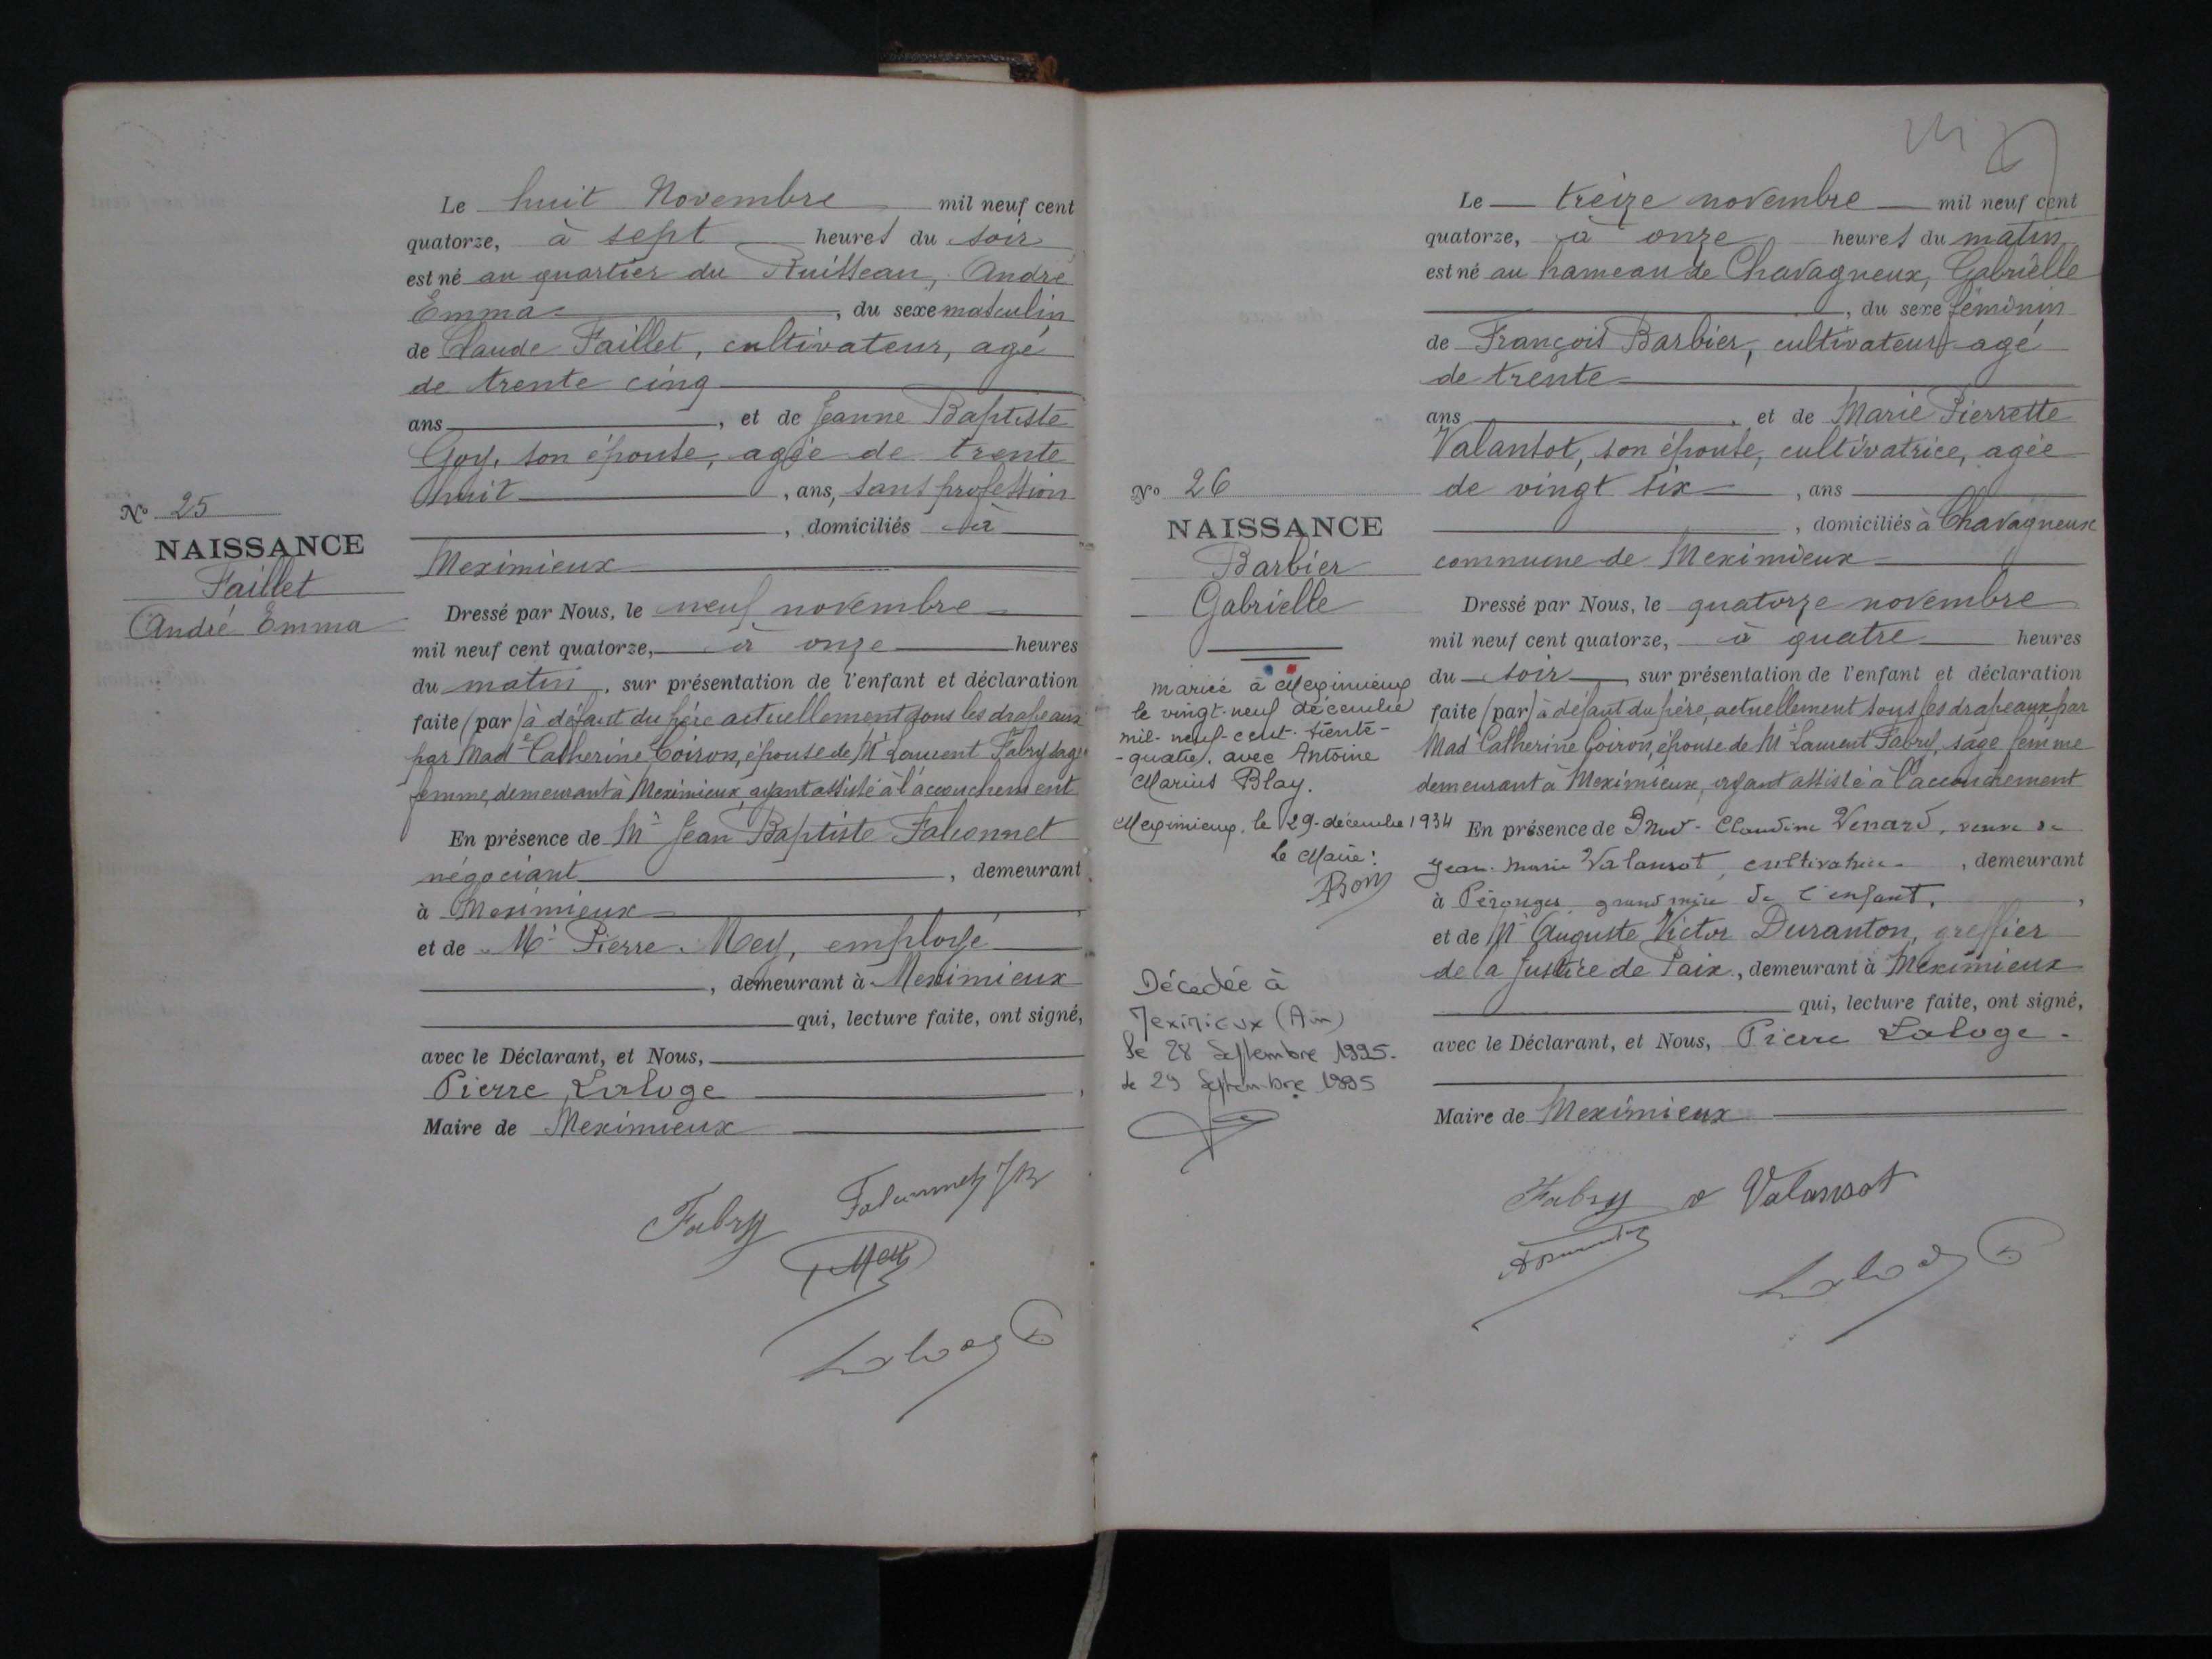 Le huit Novembre mil neuf cent
quatorze, à sept heures du soir
est né au quartier du Ruisseau, André
Emma, du sexe masculin
de Claude Faillet, cultivateur, agé
de trente cinq
ans, et de Jeanne Baptiste
Goy, son épouse, agée de trente
huit, ans, sans profession
, domiciliés à
Meximieux
N° 25
NAISSANCE
Faillet
André Emma
Dressé par Nous, le neuf novembre
mil neuf cent quatorze, à onze heures
du matin, sur présentation de l'enfant et déclaration
faite (par) à défaut du père actuellement sous les drapeaux
par Made Catherine Coiron, épouse de Mr Laurent Fabry sage
femme, demeurant à Meximieux, ayant assisté à l'accouchement
En présence de Mr Jean Baptiste Falconnet
négociant, demeurant
à Meximieux,
et de Mr Pierre Mey, employé
, demeurant à Meximieux
qui, lecture faite, ont signé,
avec le Déclarant, et Nous,
Pierre Laloge,
Maire de Meximieux
Fabry Falconnet JB
Mey
Laloge P
Le treize novembre mil neuf cent
quatorze, à onze heures du matin
est né au hameau de Chavagneux, Gabrielle
, du sexe féminin
de François Barbier, cultivateur, agé
de trente
ans, et de Marie Pierrette
Valansot, son épouse, cultivatrice, agée
de vingt six, ans
, domiciliés à Chavagneux
commune de Meximieux
N° 26
NAISSANCE
Barbier
Gabrielle
mariée à Meximieux
le vingt-neuf décembre
mil-neuf-cent-trente-
-quatre, avec Antoine
Marius Blay.
Meximieux, le 29-décembre 1934
Le Maire:
Décédée à
Meximieux (Ain)
le 28 Septembre 1995.
le 29 Septembre 1995
Dressé par Nous, le quatorze novembre
mil neuf cent quatorze, à quatre heures
du soir, sur présentation de l'enfant et déclaration
faite (par) à défaut du père, actuellement sous les drapeaux, par
Mad Catherine Coiron, épouse de Mr Laurent Fabry, sage femme
demeurant à Meximieux, ayant assisté à l'accouchement
En présence de Claudine Venard, veuve de
Jean-Marie Valansot, cultivatrice, demeurant
à Pérouges, grand mère de l'enfant,
et de Mr Auguste Victor Duranton, greffier
de la Justice de Paix, demeurant à Meximieux
qui, lecture faite, ont signé,
avec le Déclarant, et Nous, Pierre Laloge.
Maire de Meximieux
Fabry Valansot
Laloge P